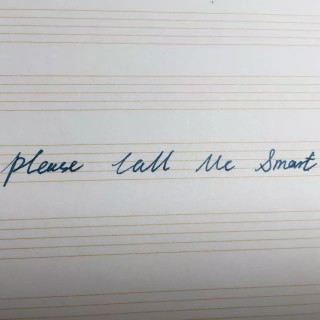 please call Me Smart